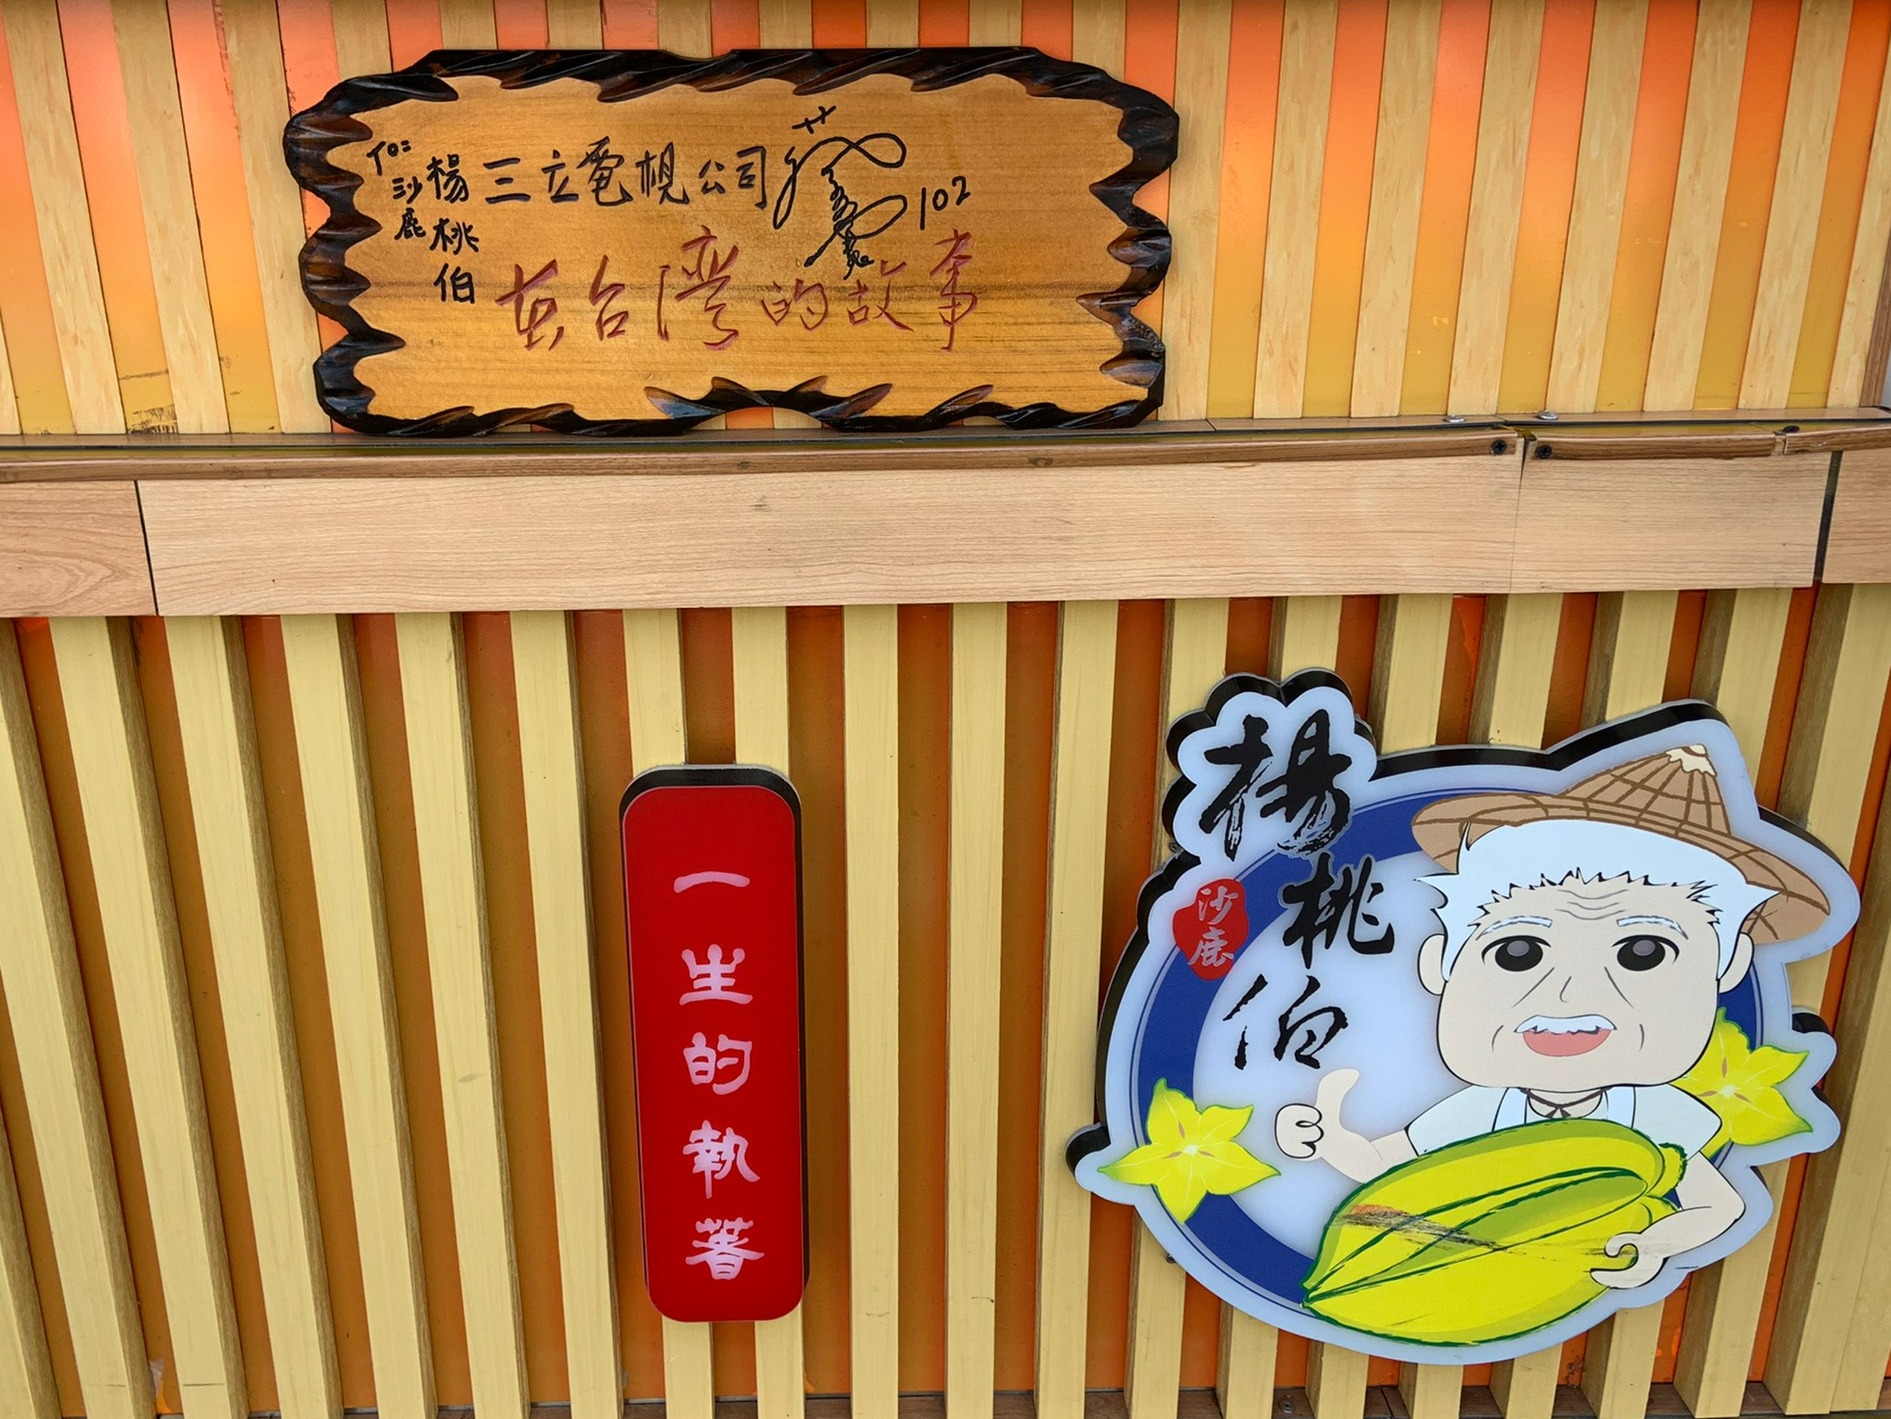 To: 沙鹿
楊桃伯
三立電視公司
102
在台灣的故事
一生的執著
楊桃伯
沙鹿